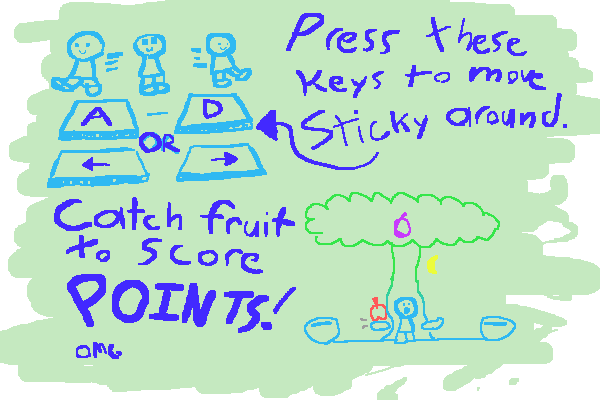 Press these
keys to move
Sticky around.
A - D
OR
← →
Catch fruit
to score
POINTS!
OMG